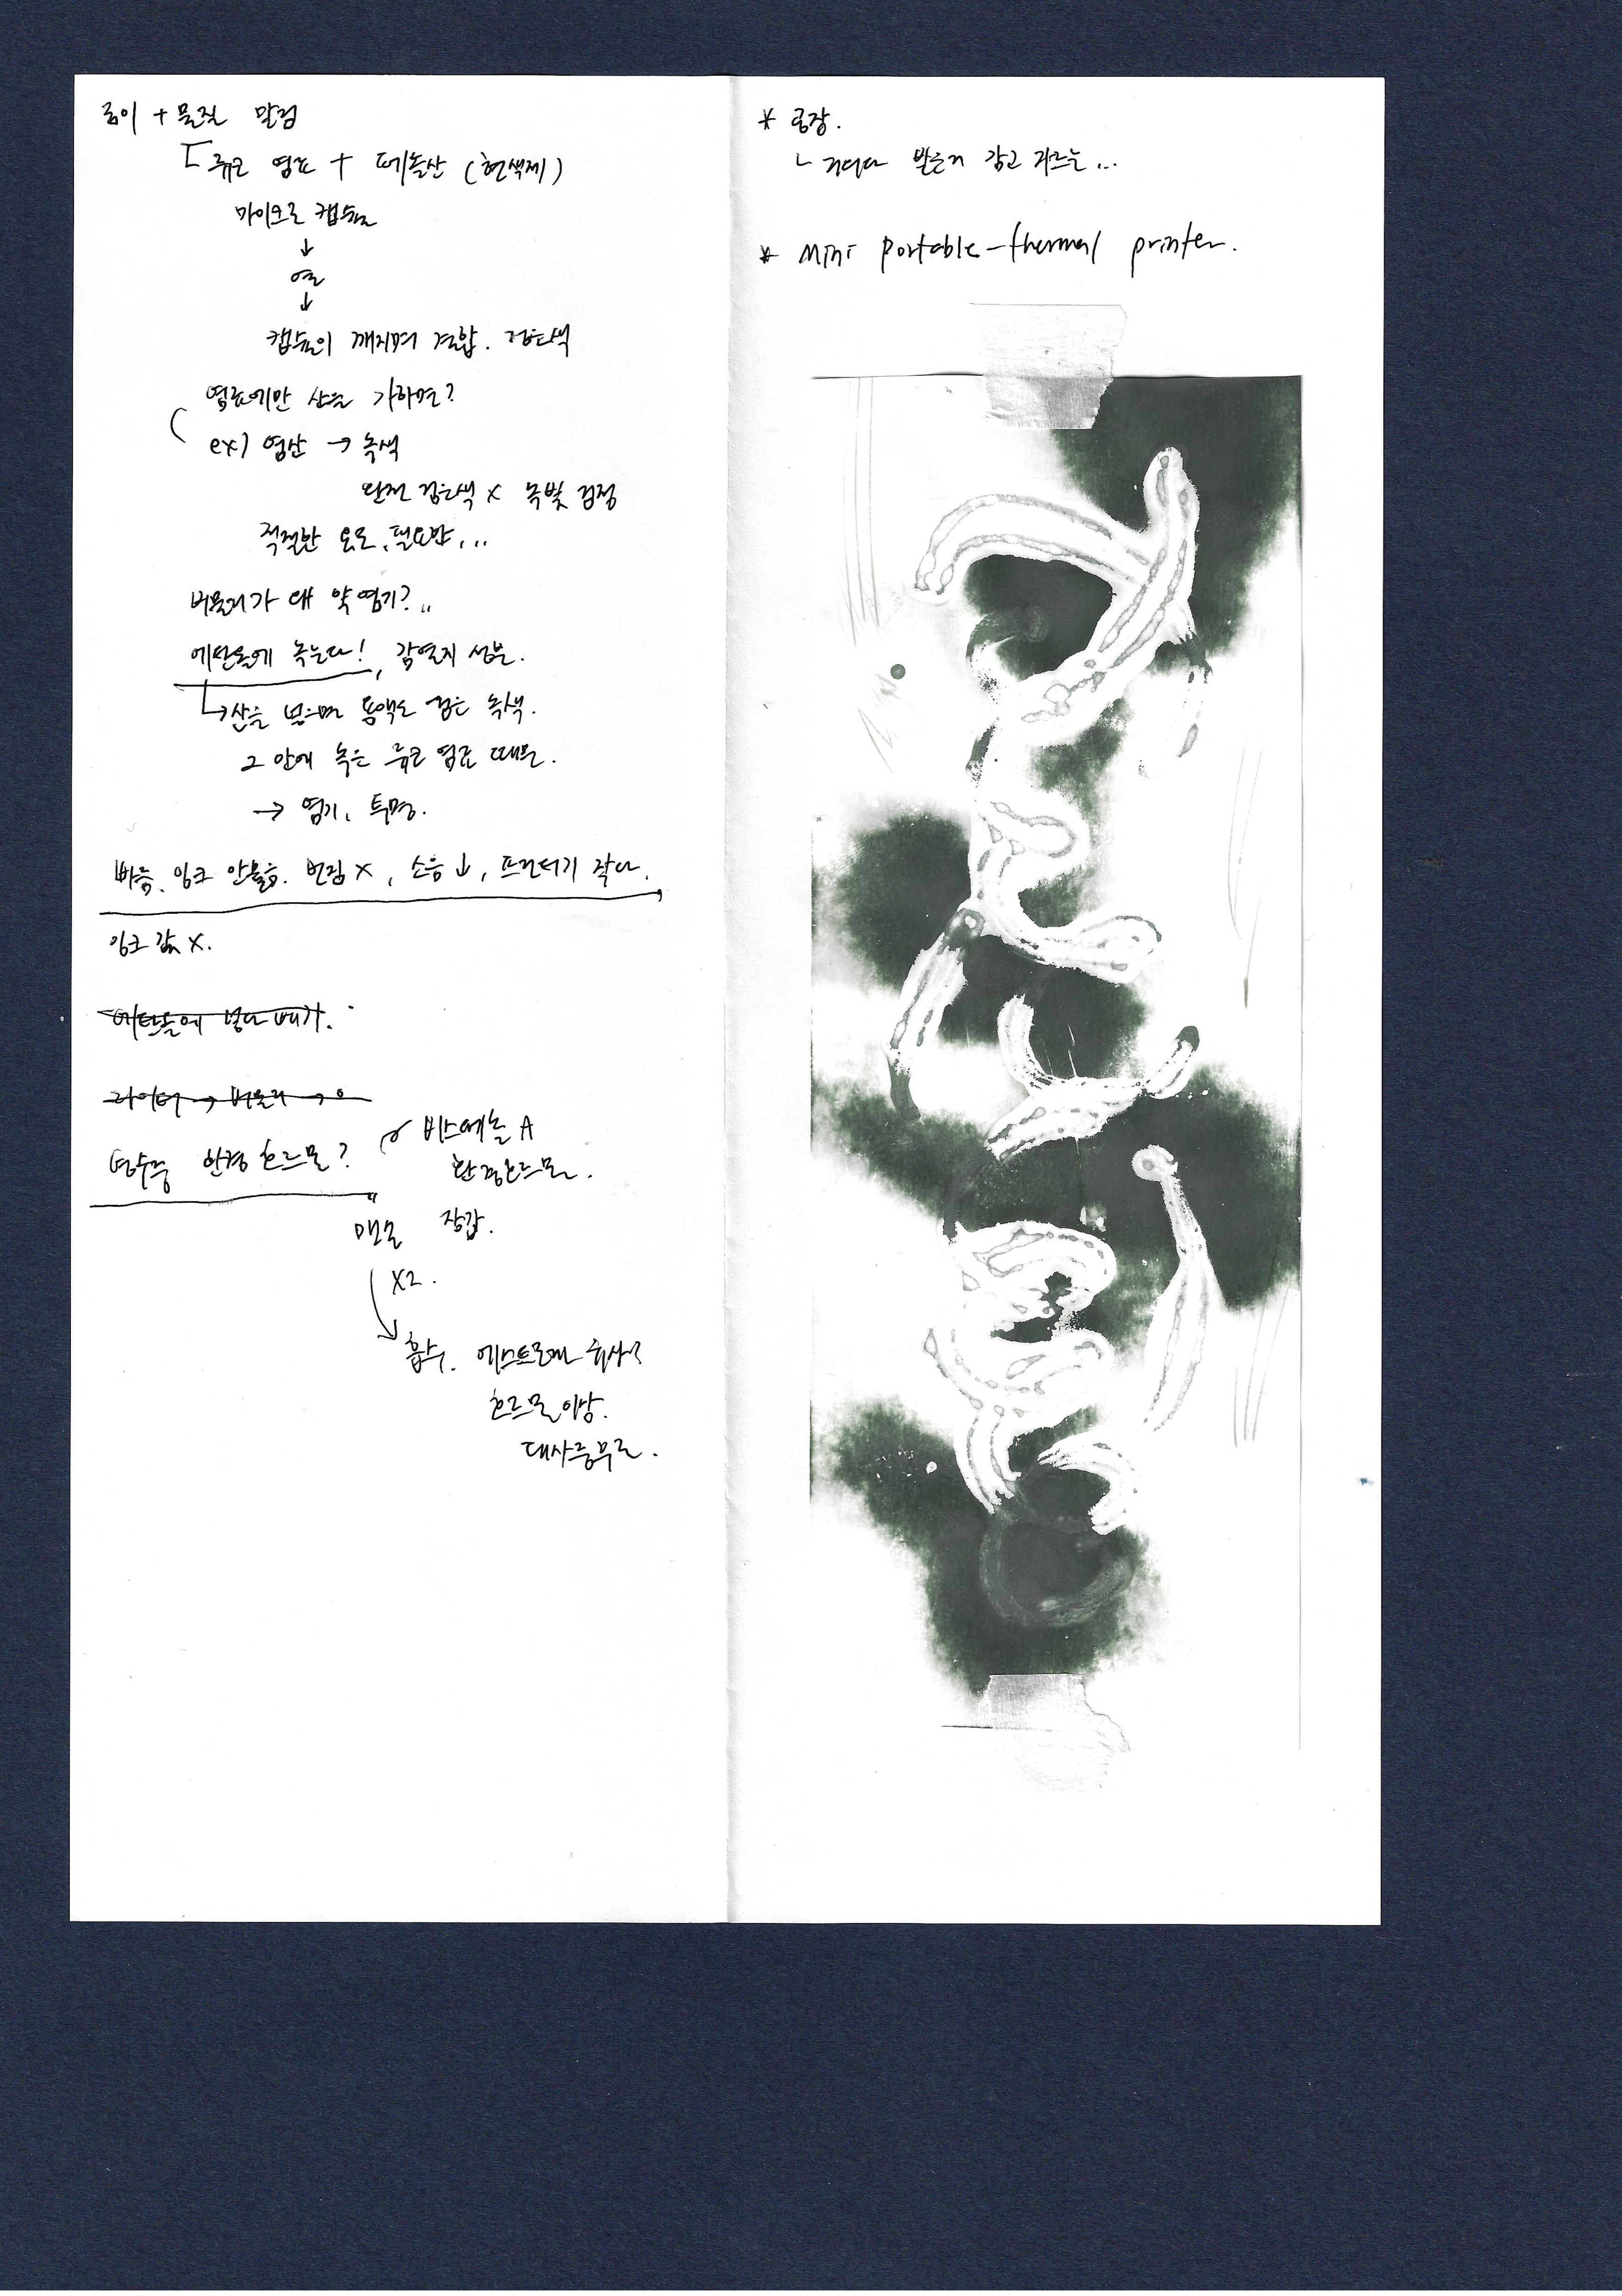 종이 + 물질 발림
류코 염료 + 페놀산 (현색제)
마이크로 캡슐
↓
열
↓
캡슐이 깨지며 결합. 검은색
염료에만 산을 가하면?
ex) 염산 → 녹색
완전 검은색 x 녹빛 검정
적절한 온도, 필요한...
버물리가 왜 약염기?..
에탄올에 녹는다!, 감열지 성분.
↳ 산을 넣으면 용액도 검은 녹색.
그 안에 녹은 류코 염료 때문.
→ 염기, 투명.
빠름, 잉크 안물음. 번짐 x, 소음 ↓, 프린터기 작다.
잉크 값 x.
에탄올에 넣다 빼기.
라이터 → 버물리 → o
영수증 환경 호르몬?
비스페놀 A
환경호르몬.
맨손 장갑.
x2.
흡수. 에스트로겐 유사?
호르몬 이상.
대사증후군.
* 공장.
ㄴ 감고 자르는...
* Mini portable-thermal printer.